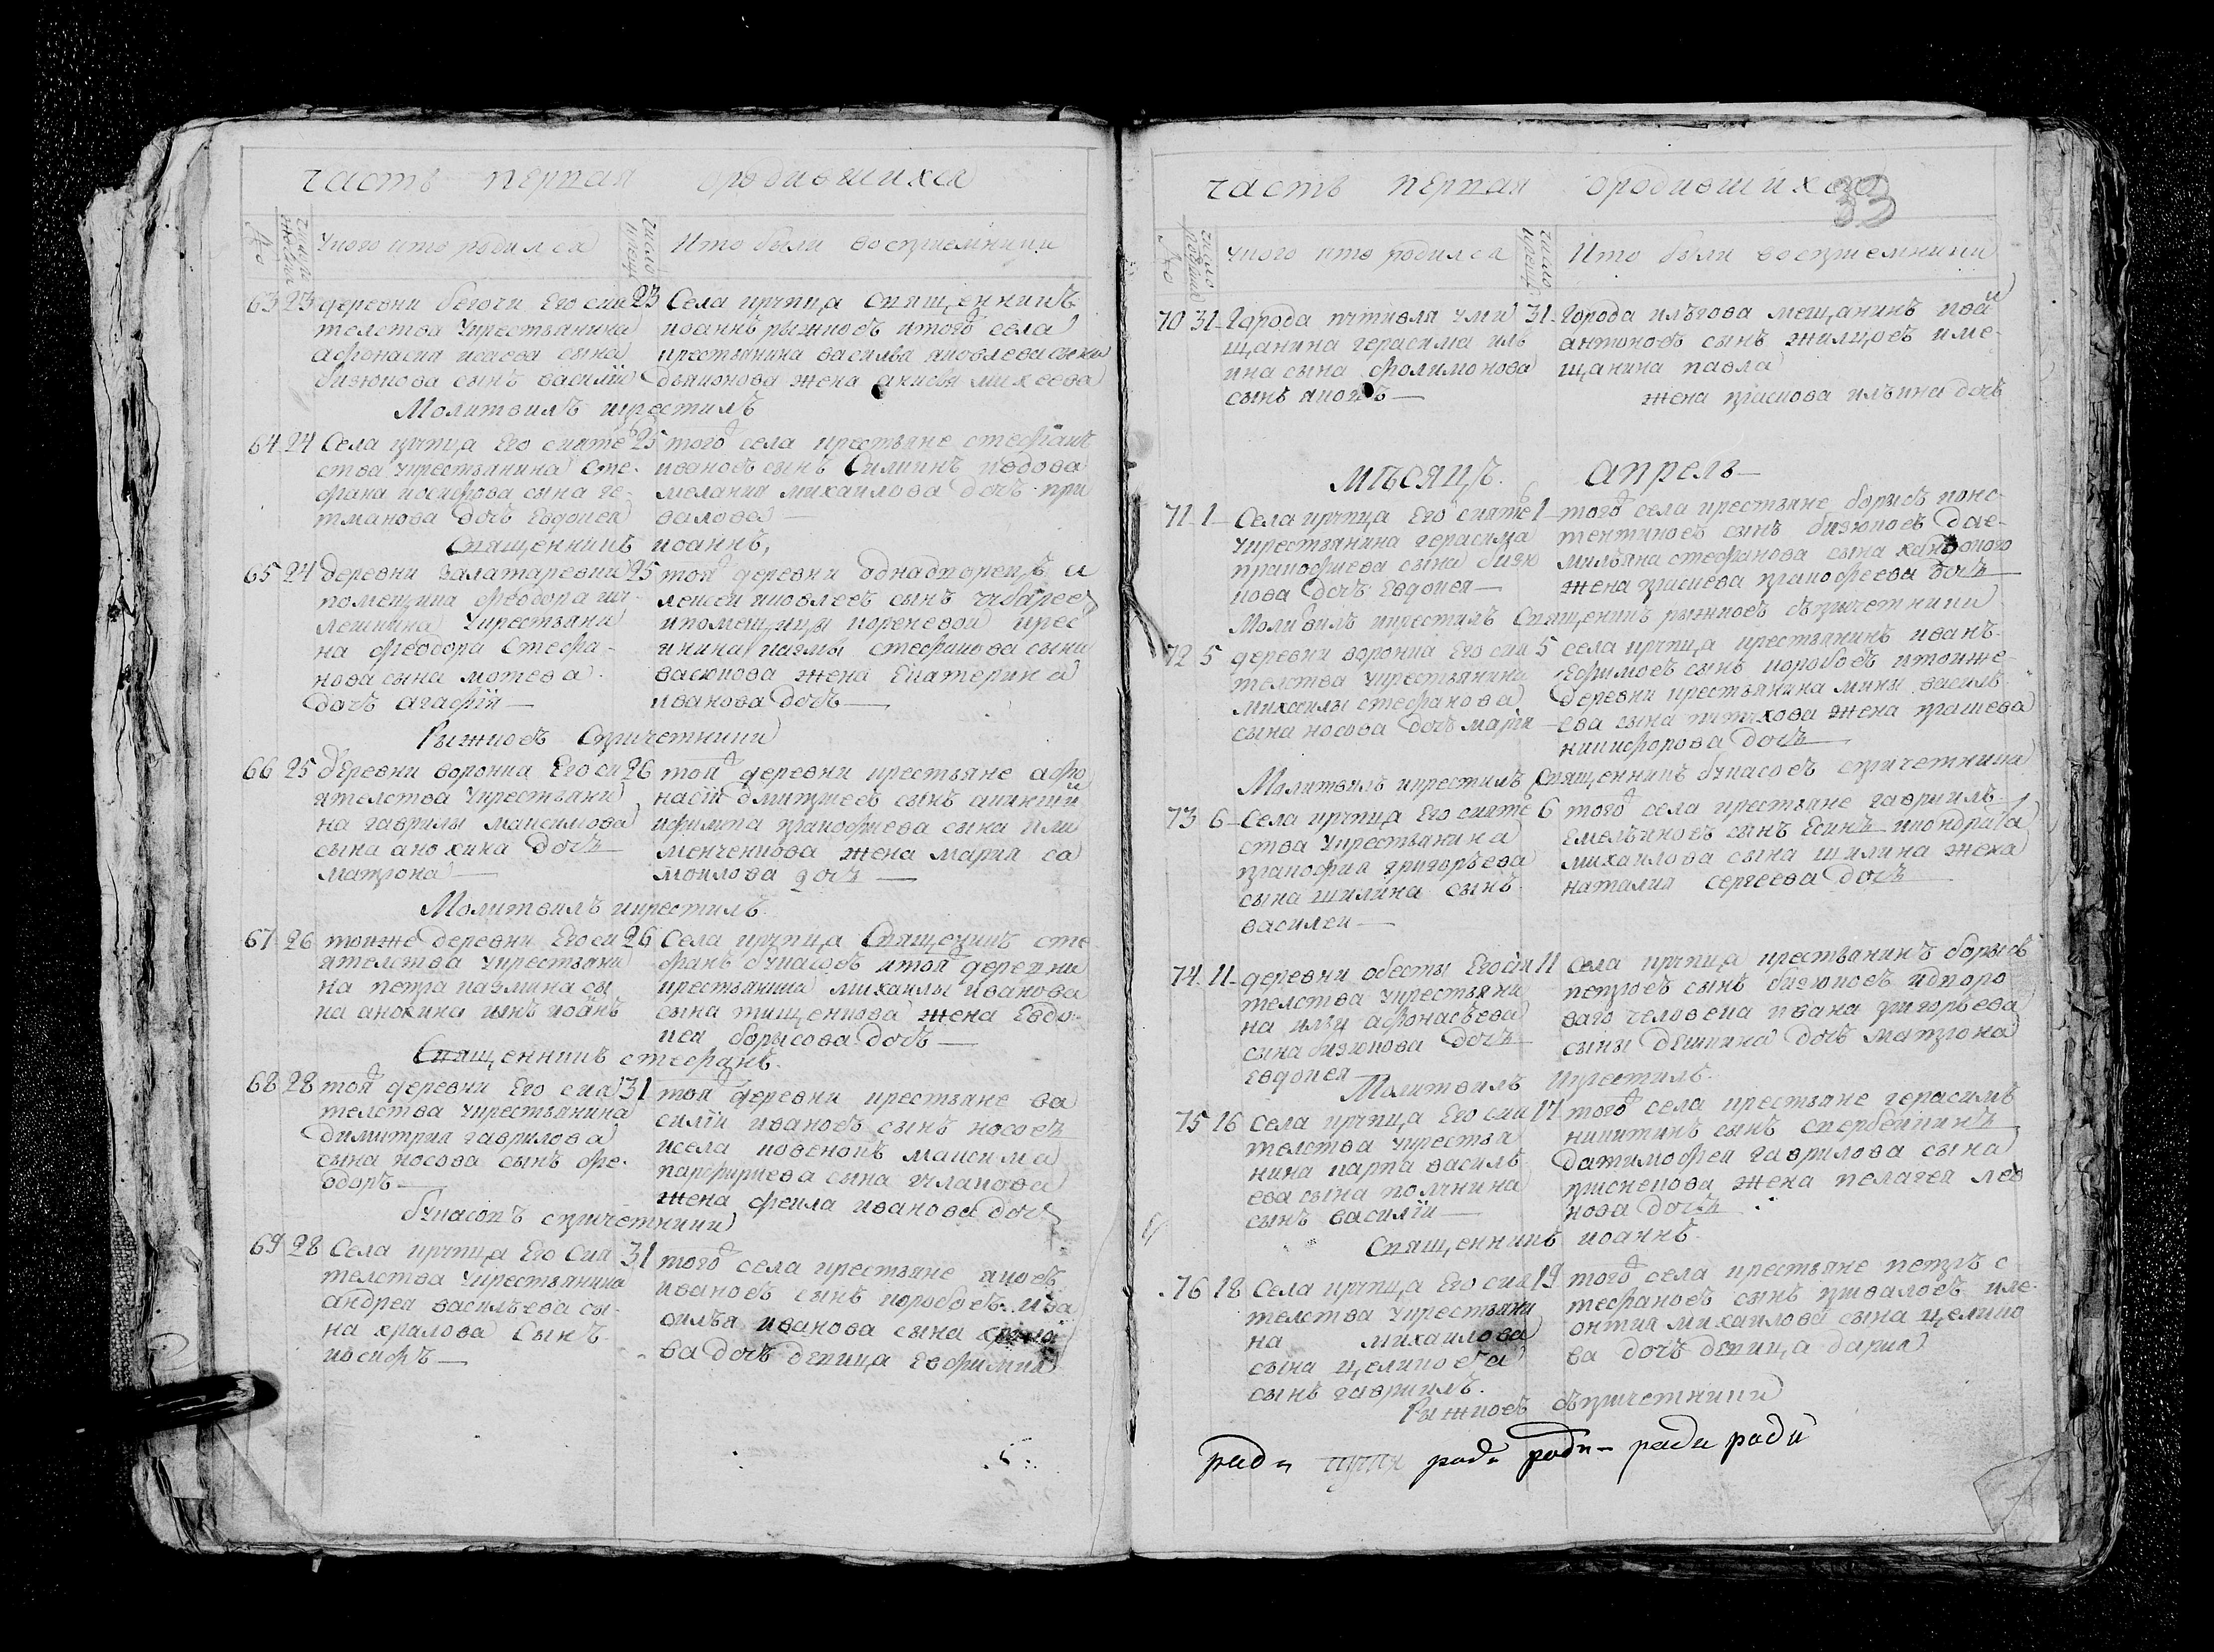 часть первая ородившихся
№
число рожден
У кого кто родился
число крещ
Кто были восприемники
63 23 деревни бегочи Его сия
телства Укрестьянина
афонасия исаева сына
бизюкова сынъ василiй
23 Села крупца священникъ
иоаннъ рыжковъ итого села
крестьянина василья яковлева сына
жена анисья михеева
Молитвилъ икрестилъ
64 24 Села крупца Его сияте
ства Укрестьянина Сте-
фана иосифова сына ге-
тманова дочь Евдокея
25 того села крестьяне стефанъ
ивановъ сынъ Силкинъ вдова
мелания михаилова дочь при
валова
Священникъ иоаннъ,
65 24 деревни залатаревки
помещика феодора
Укрестьяни
на феодора Стефа-
нова сына мотева
дочь агафiя
25 той деревни однадворецъ а
лексей яковлевъ сынъ
ипомещицы кореневой крес
янина стефанова сына
васюкова жена Екатерина
иванова дочь
Рыжковъ спричетники
66 25 деревни воронка Его си
ятелства Укрестьяни
на гаврилы максимова
сына анохина дочь
матрона
26 той деревни крестьяне афо
насiй дмитревъ сынъ аникинъ
прокофиева сына кли
менченкова жена мария са
моилова дочь
Молитвилъ икрестилъ
67 26 тоиже деревни Его си
ятелства Укрестьяни
на петра сы
на анохина иоанъ
26 Села крупца Священикъ сте
фанъ букасовъ итой деревни
крестьянина михаилы иванова
сына тищенкова жена Евдо-
кея борисова дочь
Священникъ стефанъ
68 28 той деревни Его сия
телства Укрестьянина
димитрия гаврилова
сына носова сынъ фе-
одоръ
31 той деревни крестьяне ва
силiй ивановъ сынъ носовъ
исела максима
парфириева сына гулакова
жена фекла иванова дочь
букасовъ спричетники
69 28 Села крупца Его Сия
телства Укрестьянина
андрея васильева сы-
на хралова Сынъ
иосифъ
31 того села крестьяне яковъ
ивановъ сынъ коробовъ ива
силья иванова сына
ва дочь девица Евфимия
часть первая ородившихся
33
№
число рожден
У кого кто родился
число крещ
Кто были восприемники
70 31 Города путивля уме
щанина герасима иль
ина сына филимонова
сынъ яковъ
31 Города льгова мещанинъ
антоновъ сынъ жилцовъ име-
щанина павла
жена праскова ильина дочь
мѣсяцъ апрель
71 1 Села крупца Его сияте
Укрестьянина герасима
пракофиева сына бизю
кова дочь Евдокея
1 того села крестьяне борисъ конс-
тентиновъ сынъ бизюковъ дае-
мильяна стефанова сына
жена праскева пракофеева дочь
Молитвилъ икрестилъ Священикъ рыжковъ съпричетники
72 5 деревни воронка Его сия
телства Укрестьянина
михаилы стефанова
сына носова дочь мария
5 села крупца крестьянинъ иванъ
Ефимовъ сынъ коробовъ итоиже
деревни крестьянина мины василь
ева сына жена праскева
никифорова дочь
Молитвилъ икрестилъ Священникъ букасовъ спричетники
73 6 Села крупца Его сияте
ства Укрестьянина
пракофия григорьева
сына шилина сынъ
василей
6 того села крестьяне гавриилъ
Емельяновъ сынъ Есинъ икондрата
михаилова сына шилина жена
наталия сергеева дочь
74 11 деревни обесты Его сия
телства Укрестьяни
на ильи афонасьева
сына бизюкова дочь
Евдокея
11 Села крупца крестьянинъ борисъ
петровъ сынъ бизюковъ идворо
ваго человека ивана григорьева
сына дешкина дочь матрона
Молитвилъ икрестилъ
75 16 Села крупца Его сия
телства Укрестья
нина карпа василь
ева сына полунина
сынъ василiй
17 того села крестьяне герасимъ
никитинъ сынъ
датимофея гаврилова сына
жена пелагея лев
нова дочь
Священникъ иоаннъ
76 18 Села крупца Его сия
телства Укрестьяни
на михаилова
сына целикова
сынъ гавриилъ
19 того села крестьяне петръ с
тефановъ сынъ привалов иле-
онтия михаилова сына целико
ва дочь девица дария
Рыжковъ съпричетники
ради ради ради ради ради